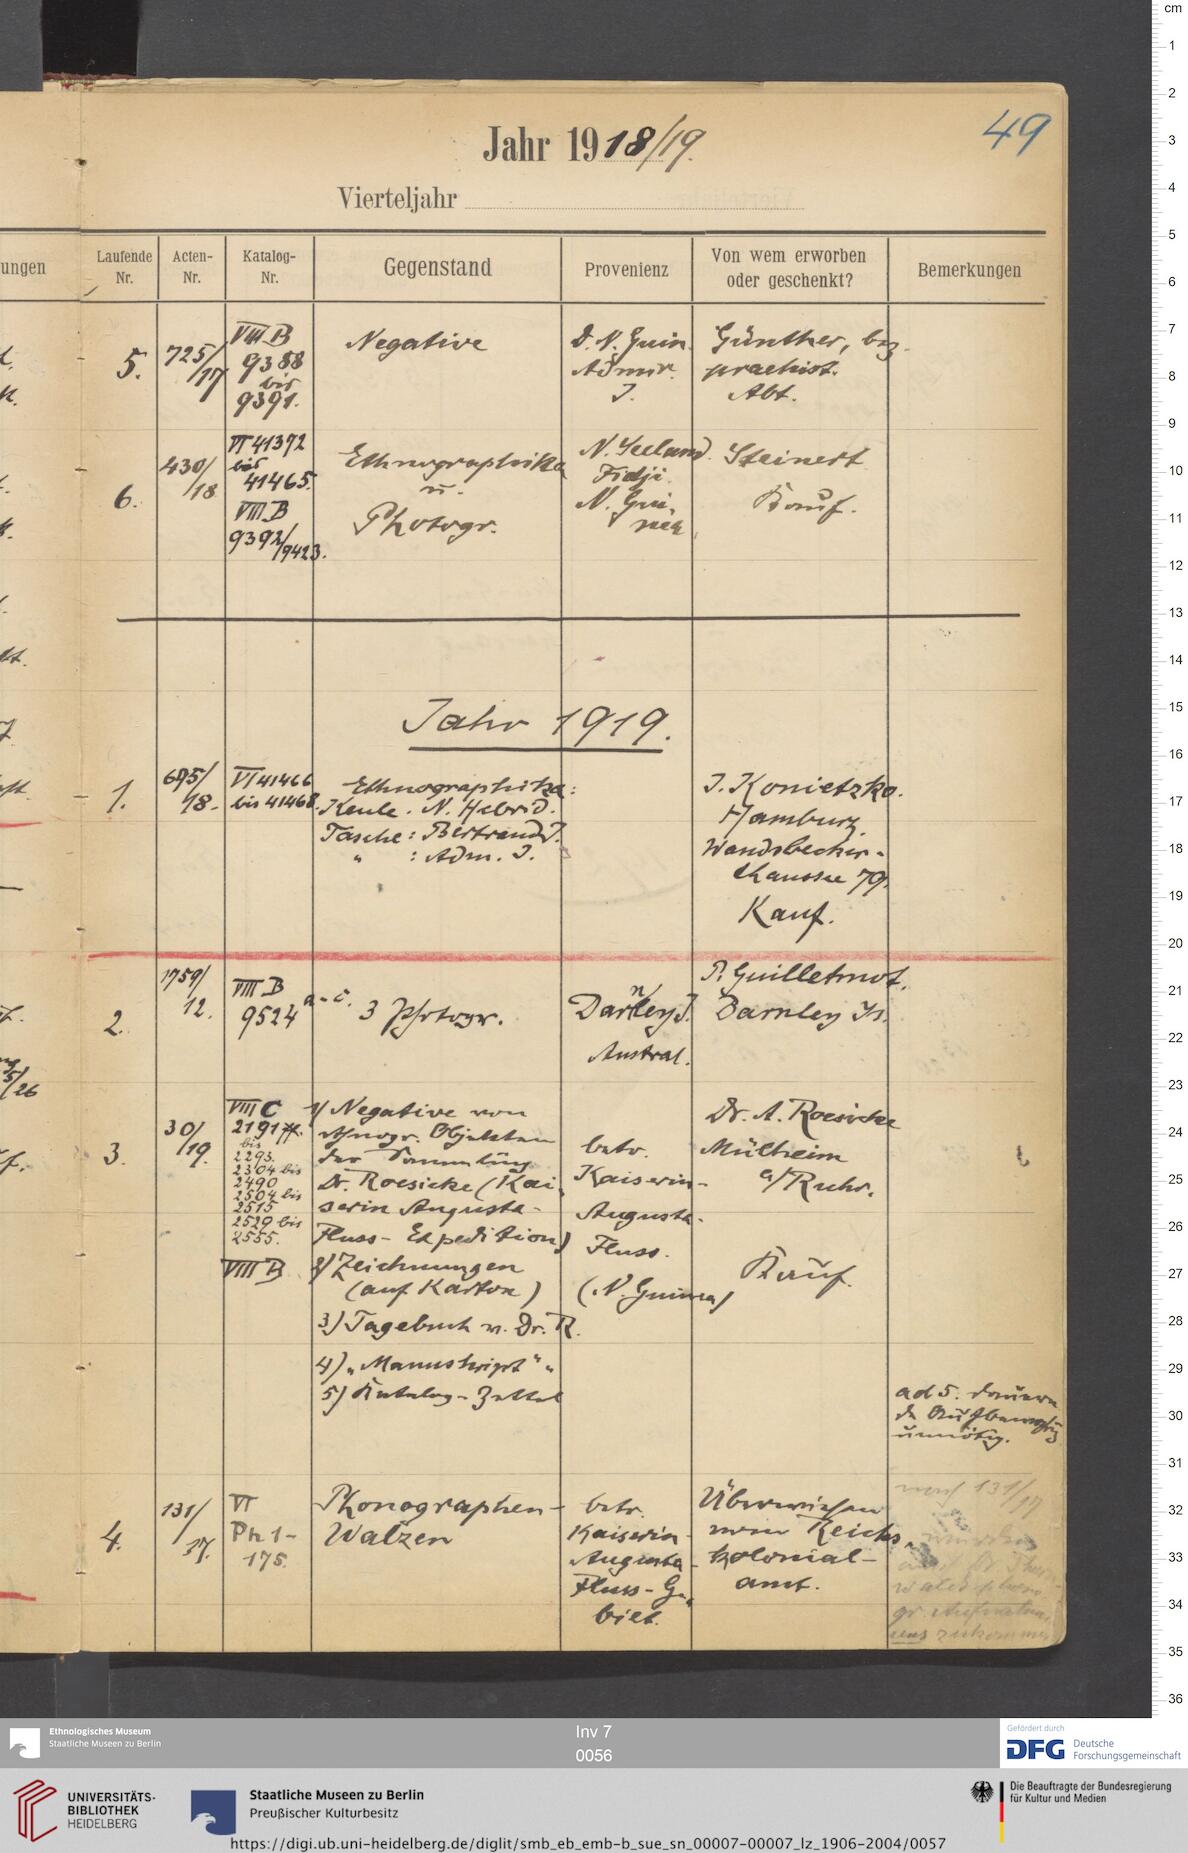 49
Jahr 1918/19.
Vierteljahr
ungen
Laufende Nr.
Acten-Nr.
Katalog-Nr.
Gegenstand
Provenienz
Von wem erworben oder geschenkt?
Bemerkungen
5.
725/17
VIII B
9388
bis
9391.
Negative
D. N. Guin.
Admir.
I.
Günther, bez.
praehist.
Abt.
6.
430/18
VI 41372
bis
41465.
VIII B
9392/9423.
Ethnographika
u.
Photogr.
N. Seeland
Fidji.
N. Gui-
nea
Steinert
Kauf.
Jahr 1919.
1.
695/18.
VI 41466
bis 41468.
Ethnographika:
Keule. N. Hebrid.
Tasche: Bertrand I.
" : Adm. I.
J. Konietzko.
Hamburg.
Wandsbecker-
Chaussee 79.
Kauf.
2.
1759/12.
VIII B
9524 a-c.
3 Photogr.
Darnley I.
Austral.
P. Guilletmot.
Darnley Is.
3.
30/19.
VIII C
2191 ff.
bis
2293.
2304 bis
2490
2504 bis
2515
2529 bis
2555.
VIII B
1/ Negative von
ethnogr. Objekten
der Sammlung
Dr. Roesicke (Kai-
serin Augusta-
Fluss-Expedition)
2/ Zeichnungen
(auf Karton)
3) Tagebuch v. Dr. R.
4) "Manuskript" "
5) Katalog-Zettel
betr.
Kaiserin-
Augusta-
Fluss.
(N. Guinea)
Dr. A. Roesicke
Mülheim
a/Ruhr.
Kauf.
ad 5. dauern-
de Aufbewahrung
unnötig.
4.
131/17.
VI
Ph 1-
175.
Phonographen-
Walzen
betr.
Kaiserin-
Augusta-
Fluss-Ge-
biet.
Überwiesen
vom Reichs-
kolonial-
amt.
nach 131/17
Ethnologisches Museum
Staatliche Museen zu Berlin
Inv 7
0056
Gefördert durch
DFG Deutsche
Forschungsgemeinschaft
UNIVERSITÄTS-
BIBLIOTHEK
HEIDELBERG
Staatliche Museen zu Berlin
Preußischer Kulturbesitz
Die Beauftragte der Bundesregierung
für Kultur und Medien
https://digi.ub.uni-heidelberg.de/diglit/smb_eb_emb-b_sue_sn_00007-00007_lz_1906-2004/0057
cm
1
2
3
4
5
6
7
8
9
10
11
12
13
14
15
16
17
18
19
20
21
22
23
24
25
26
27
28
29
30
31
32
33
34
35
36